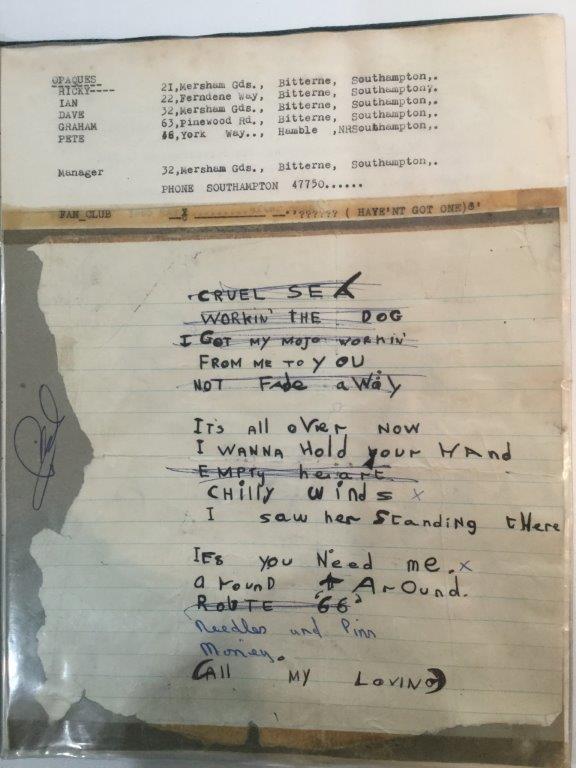 OPAQUES
RICKY---- 21,Mersham Gds., Bitterne, Southampton,.
IAN 22,Ferndene Way, Bitterne, Southampton,.
DAVE 32,Mersham Gds., Bitterne, Southampton,.
GRAHAM 63,Pinewood Rd., Bitterne, Southampton,.
PETE 46,York Way.., Hamble ,NRSouthampton,.
Manager 32,Mersham Gds., Bitterne, Southampton,.
PHONE SOUTHAMPTON 47750......
FAN CLUB ??????? ( HAVE'NT GOT ONE)
CRUEL SEA
WORKIN' THE DOG
I GOT MY MOJO WORKIN'
FROM ME TO YOU
NOT Fade aWAy
IT's All oVer NOW
I WANNA HOld your HAnd
EMPTy heart.
CHillY winds x
I saw her Standing tHere
IES you Need me. x
around + ArOund.
RouTE '66'
Needles and Pins
Money.
(All MY LoViNG)